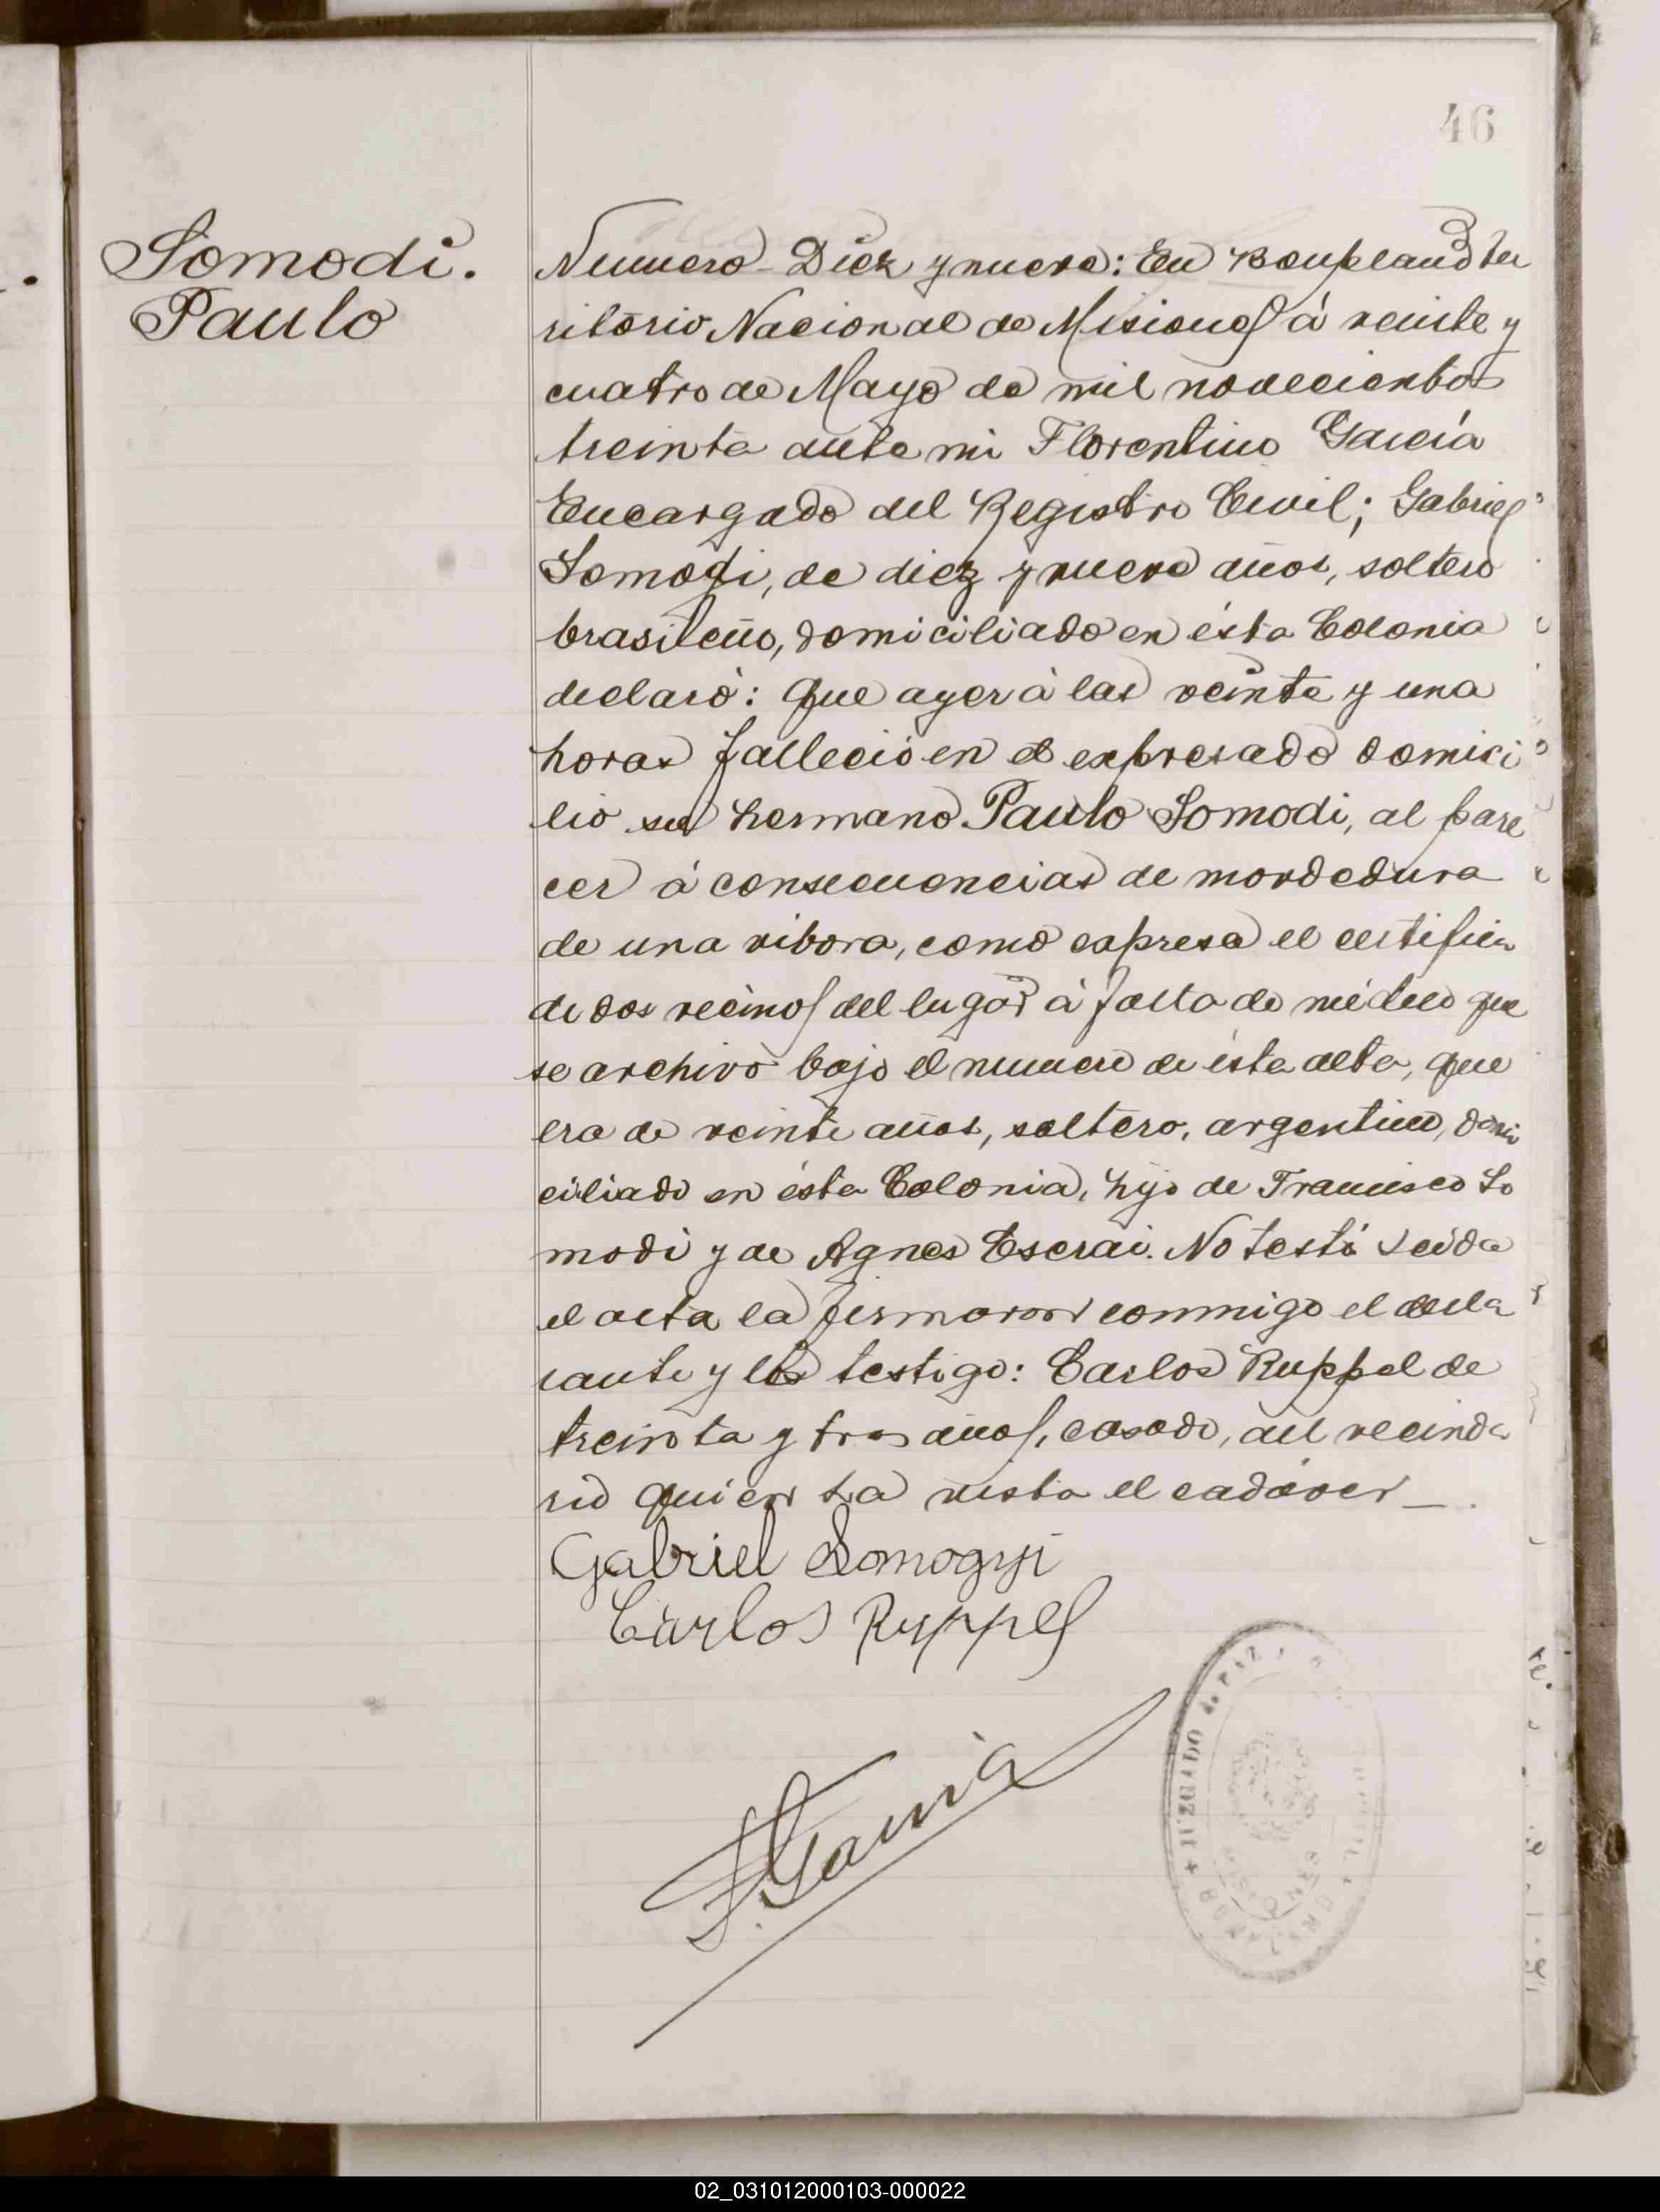 46
Somodi.
Paulo
Numero - Diez y nueve: En Bonpland ter
ritorio Nacional de Misiones á veinte y
cuatro de Mayo de mil novecientos
treinta ante mi Florentino García
Encargado del Registro Civil; Gabriel
Somogi, de diez y nueve años, soltero
brasileño, domiciliado en ésta Colonia
declaró: Que ayer á las veinte y una
horas falleció en el expresado domici
lio su hermano Paulo Somodi, al pare
cer á consecuencias de mordedura
de una vibora, como expresa el certifica
de dos vecinos del lugar á falta de médico que
se archivo bajo el numero de ésta acta, que
era de veinte años, soltero, argentino, domi
ciliado en ésta Colonia, hijo de Francisco So
modi y de Agnes Eserai. No testó Leida
el acta la firmaron conmigo el decla
rante y los testigo: Carlos Ruppel de
treinta y tres años, casado, del vecinda
rio quien ha visto el cadáver
Gabriel Somogyi
Carlos Ruppel
F. Garcia
JUZGADO de PAZ
MISIONES
BONPLAND
02_031012000103-000022